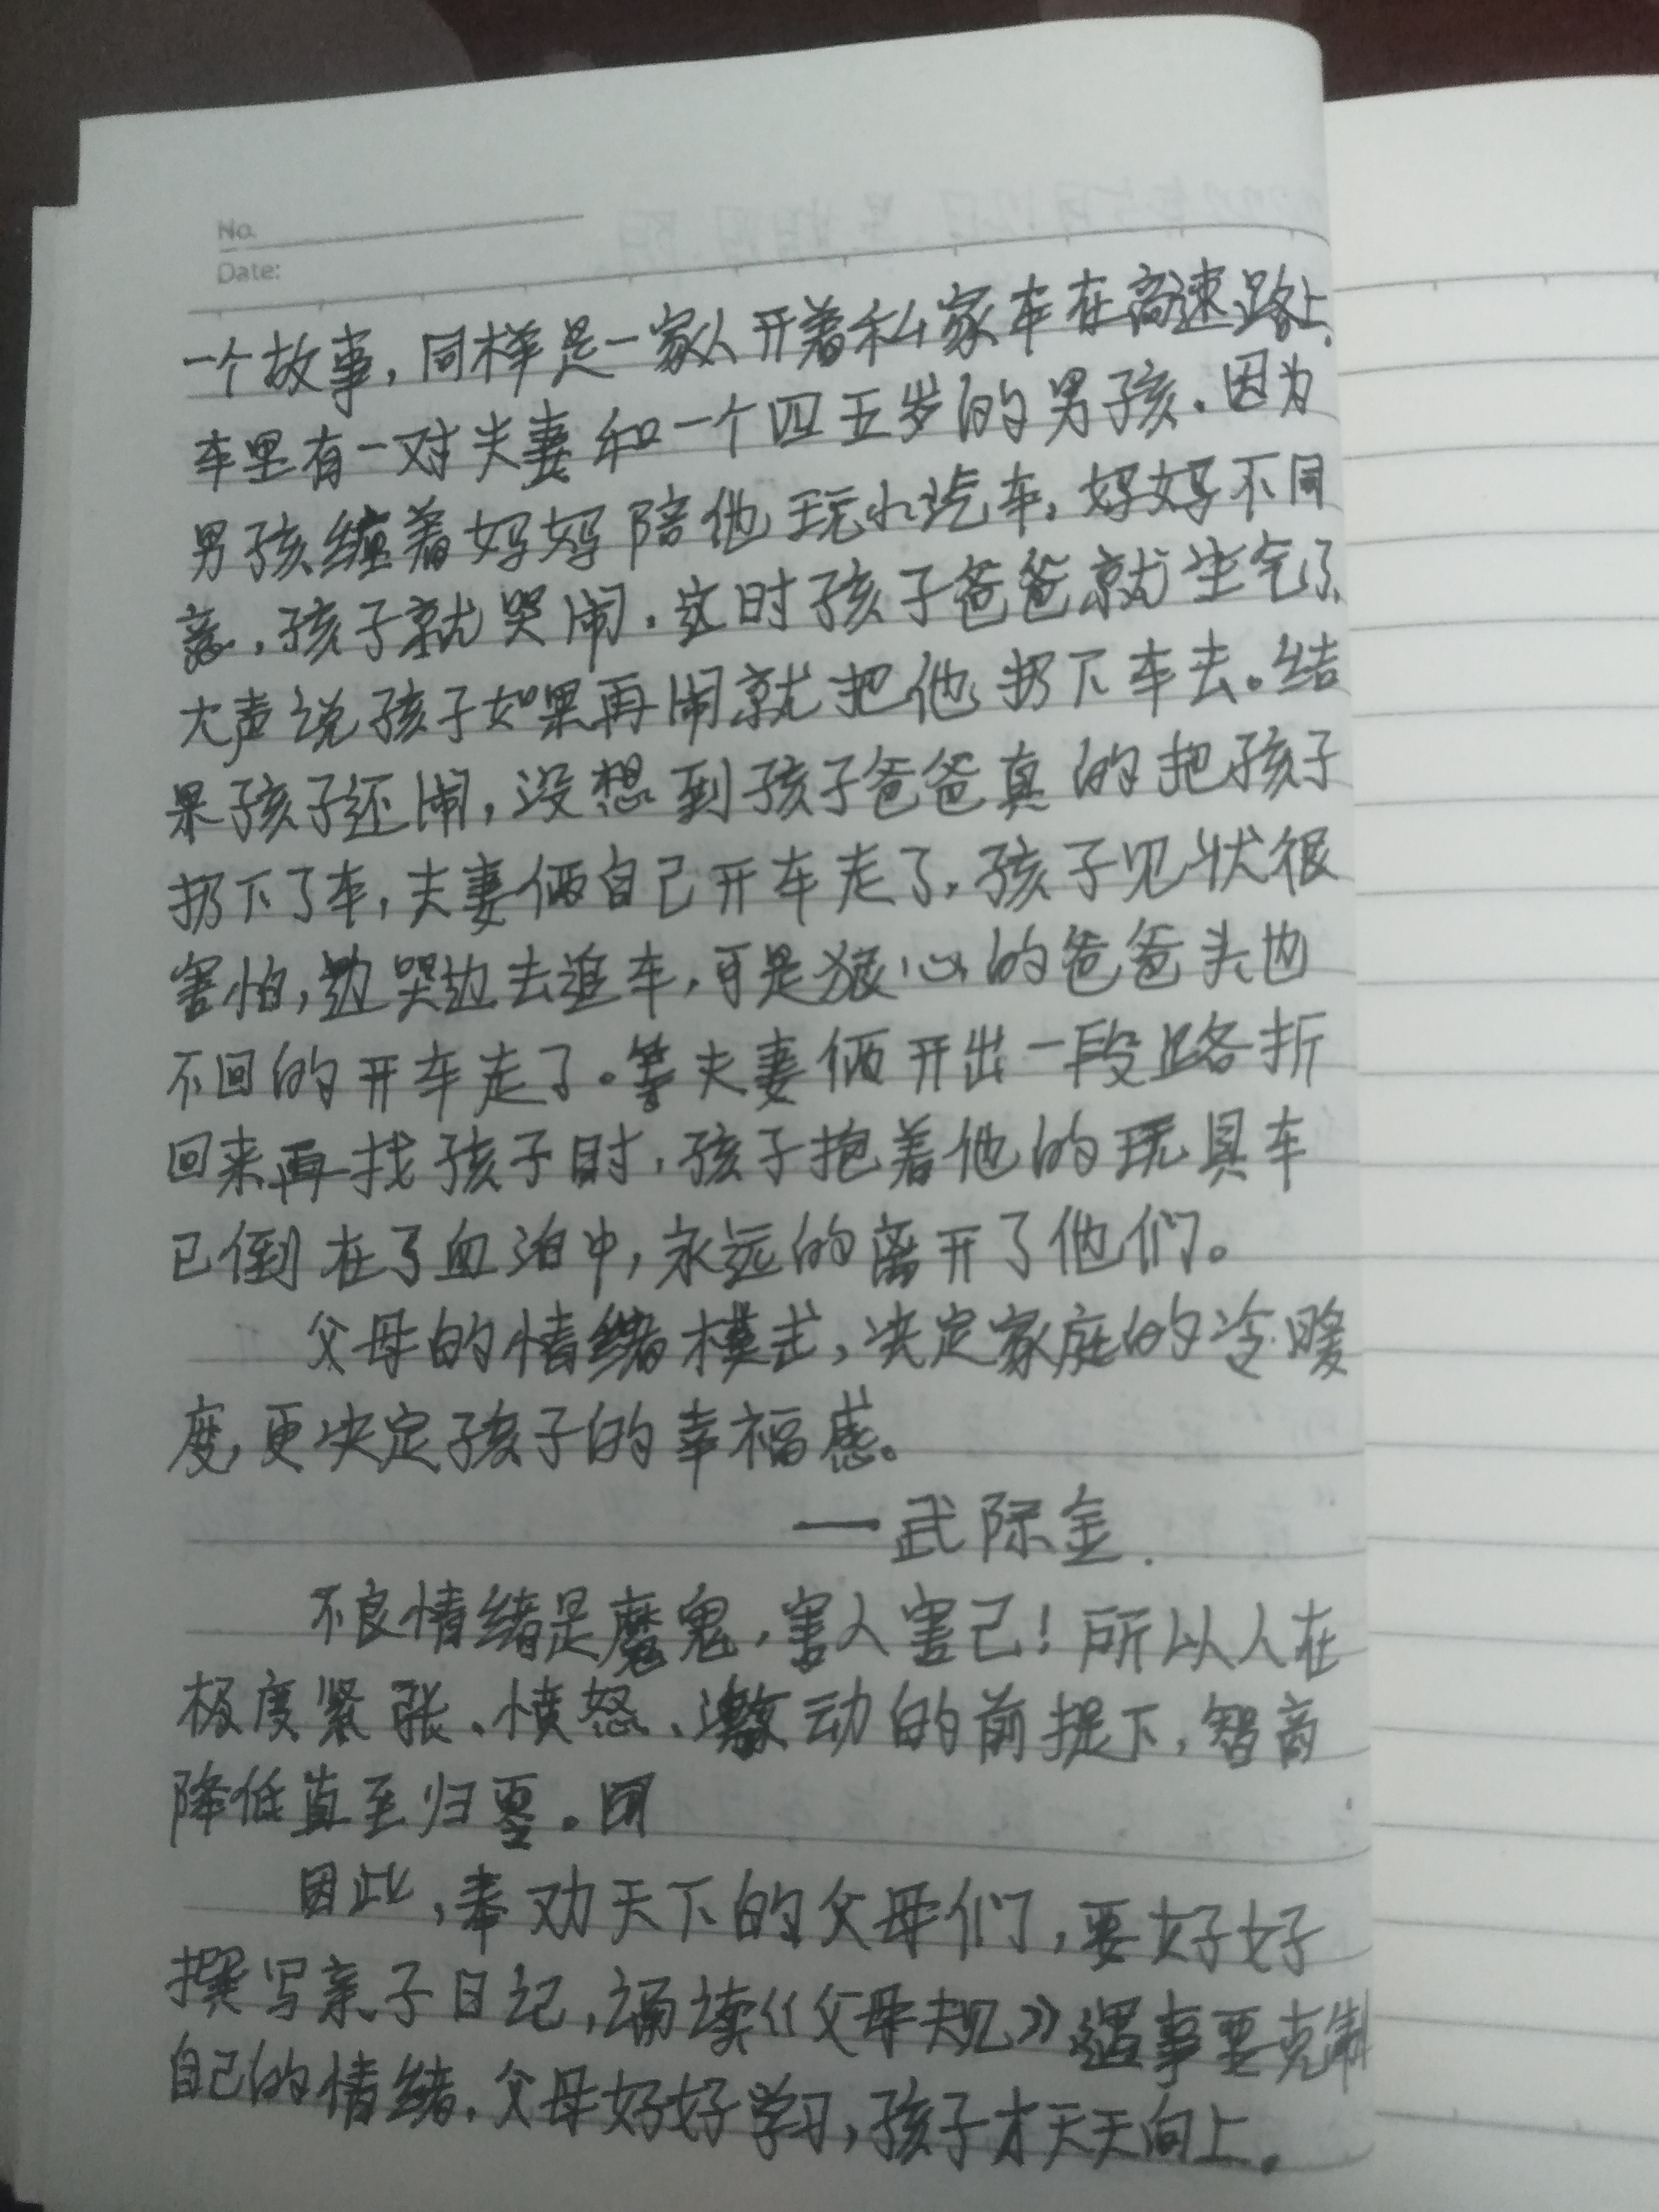 No.
Date:
一个故事,同样是一家人开着私家车在高速路上,
车里有一对夫妻和一个四五岁的男孩.因为
男孩缠着妈妈陪他玩小汽车,妈妈不同
意,孩子就哭闹.这时孩子爸爸就生气了,
大声说孩子如果再闹就把他扔下车去。结
果孩子还闹,没想到孩子爸爸真的把孩子
扔下了车,夫妻俩自己开车走了,孩子见状很
害怕,边哭边去追车,可是狠心的爸爸头也
不回的开车走了。等夫妻俩开出一段路折
回来再找孩子时,孩子抱着他的玩具车
已倒在了血泊中,永远的离开了他们。
父母的情绪模式,决定家庭的冷暖
度,更决定孩子的幸福感。
——武际金.
不良情绪是魔鬼,害人害己!所以人在
极度紧张、愤怒、激动的前提下,智商
降低直至归零。因
因此,奉劝天下的父母们,要好好
撰写亲子日记,诵读《父母规》遇事要克制
自己的情绪.父母好好学习,孩子才天天向上。